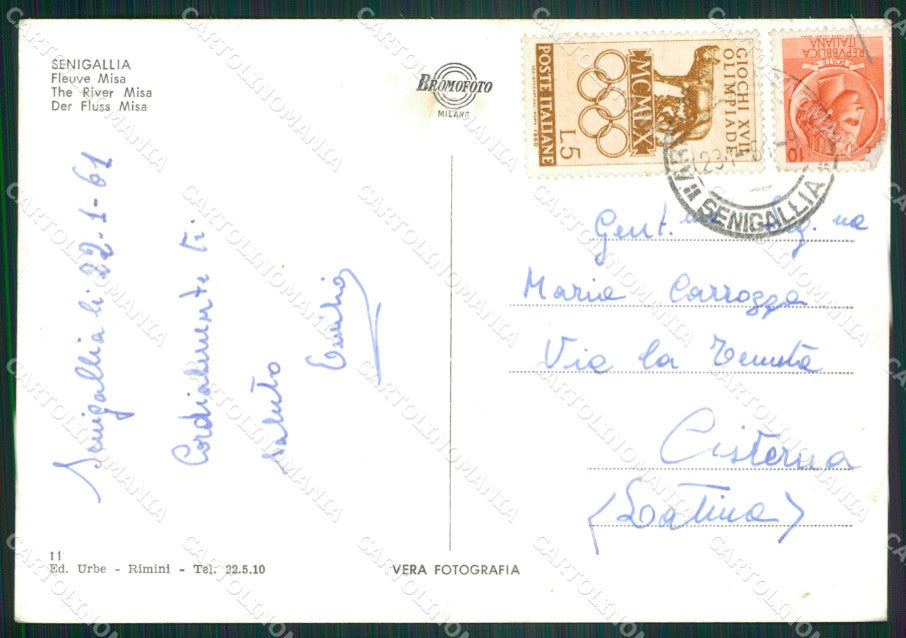 SENIGALLIA
Fleuve Misa
The River Misa
Der Fluss Misa
BROMOFOTO
MILANO
GIOCHI XVII
OLIMPIADE
MCMLX
L.5
POSTE ITALIANE
POSTE
REPVBBLICA
ITALIANA
10
SENIGALLIA
Senigallia li 22-1-61
Cordialmente ti
saluto
Emilio
Gent.ma Sig.na
Maria Carrozza
Via la Tenuta
Cisterna
(Latina)
11
Ed. Urbe - Rimini - Tel. 22.5.10
VERA FOTOGRAFIA
CARTOLINOMANIA